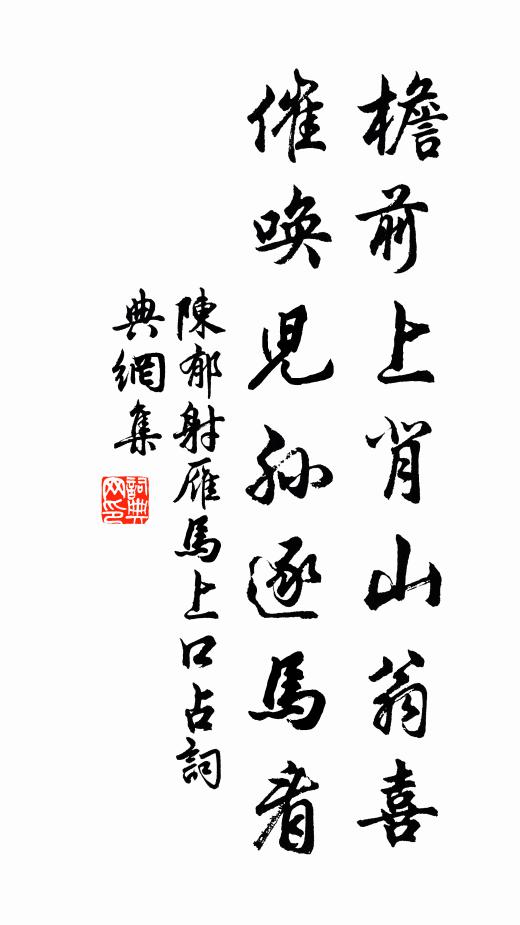 檐前上肖山翁喜
催唤兒孙逐馬看
陳郁射雁馬上口占詞
典網集
詞典
网印